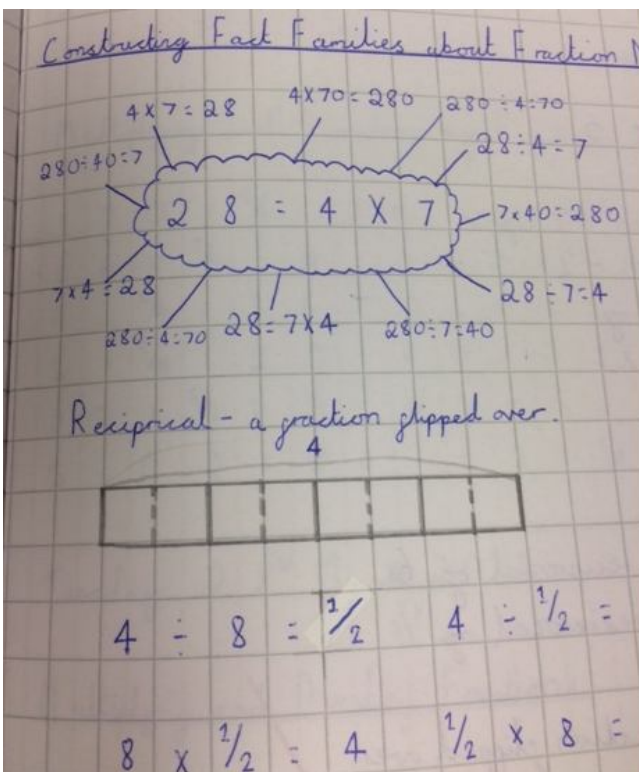 Constructing Fact Families about Fraction
4 x 7 = 28
4 x 70 = 280
280 ÷ 4 = 70
28 ÷ 4 = 7
280 ÷ 40 = 7
28 = 4 x 7
7 x 40 = 280
7 x 4 = 28
28 ÷ 7 = 4
280 ÷ 4 = 70
28 = 7 x 4
280 ÷ 7 = 40
Reciprical - a fraction flipped over.
4
4 ÷ 8 = 1/2
4 ÷ 1/2 =
8 x 1/2 = 4
1/2 x 8 =